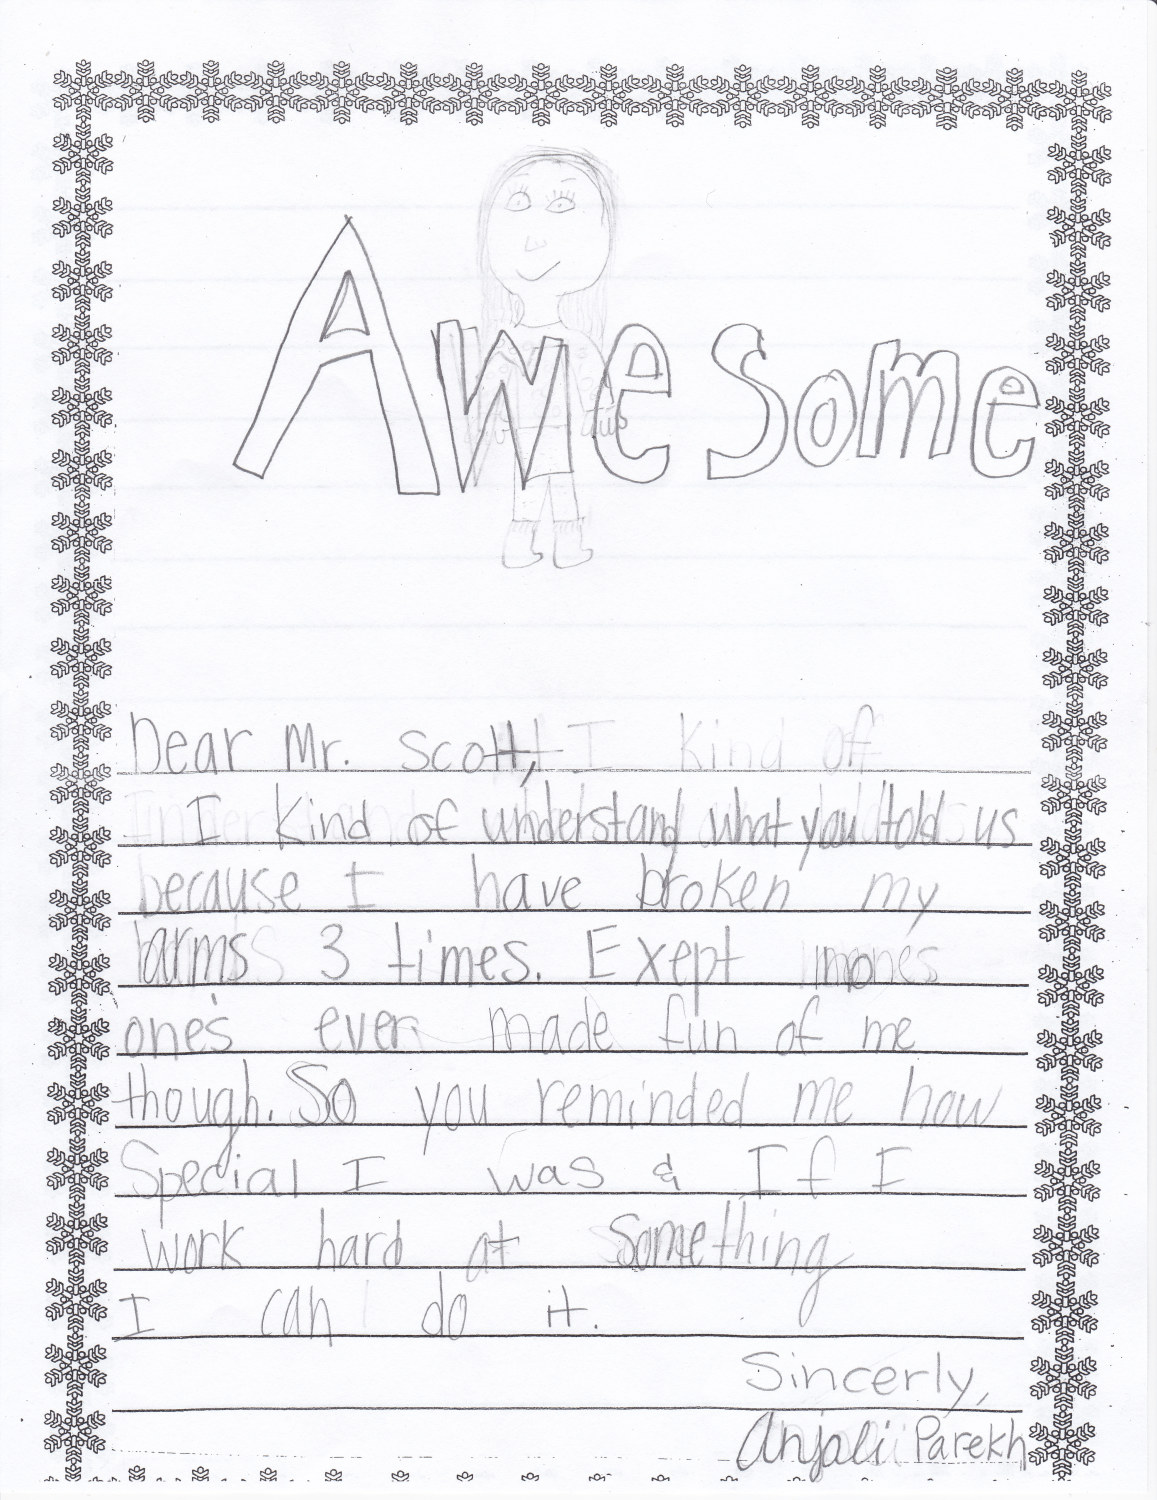 Awesome
Dear Mr. Scott,
I kind of understand what you told us
because I have broken my
arms 3 times. Exept no
one's ever made fun of me
though. So you reminded me how
Special I was & If I
work hard at something
I can do it.
Sincerly,
Anjali Parekh